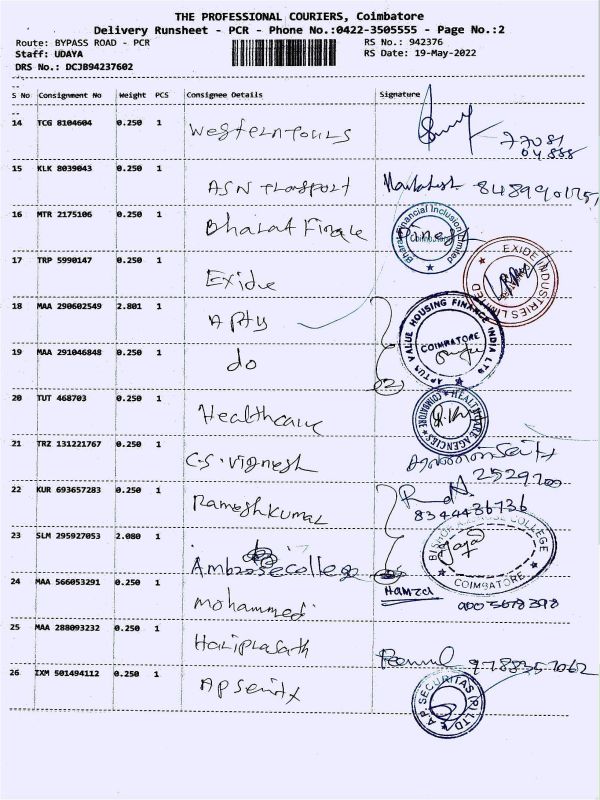 THE PROFESSIONAL COURIERS, Coimbatore
Delivery Runsheet - PCR - Phone No.:0422-3505555 - Page No.:2
Route: BYPASS ROAD - PCR
RS No.: 942376
Staff: UDAYA
RS Date: 19-May-2022
DRS No.: DCJB94237602
S No Consignment No Weight PCS Consignee Details Signature
14 TCG 8104604 0.250 1 Western Tours
15 KLK 8039043 0.250 1 ASN Trasport
16 MTR 2175106 0.250 1 Bharat Finace Dinesh
Bharat Financial Inclusion Limited
Coimbatore
17 TRP 5990147 0.250 1 Exide
EXIDE INDUSTRIES LIMITED
18 MAA 290602549 2.801 1 Aptus
APTUS VALUE HOUSING FINANCE INDIA LTD
COIMBATORE
19 MAA 291046848 0.250 1 do
2
20 TUT 468703 0.250 1 Healthcare
HEALTHCARE AGENCIES
COIMBATORE
21 TRZ 131221767 0.250 1 C.S. Vignesh
2529700
22 KUR 693657283 0.250 1 Rameshkumar
8344436736
23 SLM 295927053 2.080 1 Ambrose college
BISHOP AMBROSE COLLEGE
COIMBATORE
24 MAA 566053291 0.250 1 Mohammed Hamza
25 MAA 288093232 0.250 1 Hariprasath 9788357062
26 IXM 501494112 0.250 1 AP Seritx
A.P. SECURITAS (P) LTD